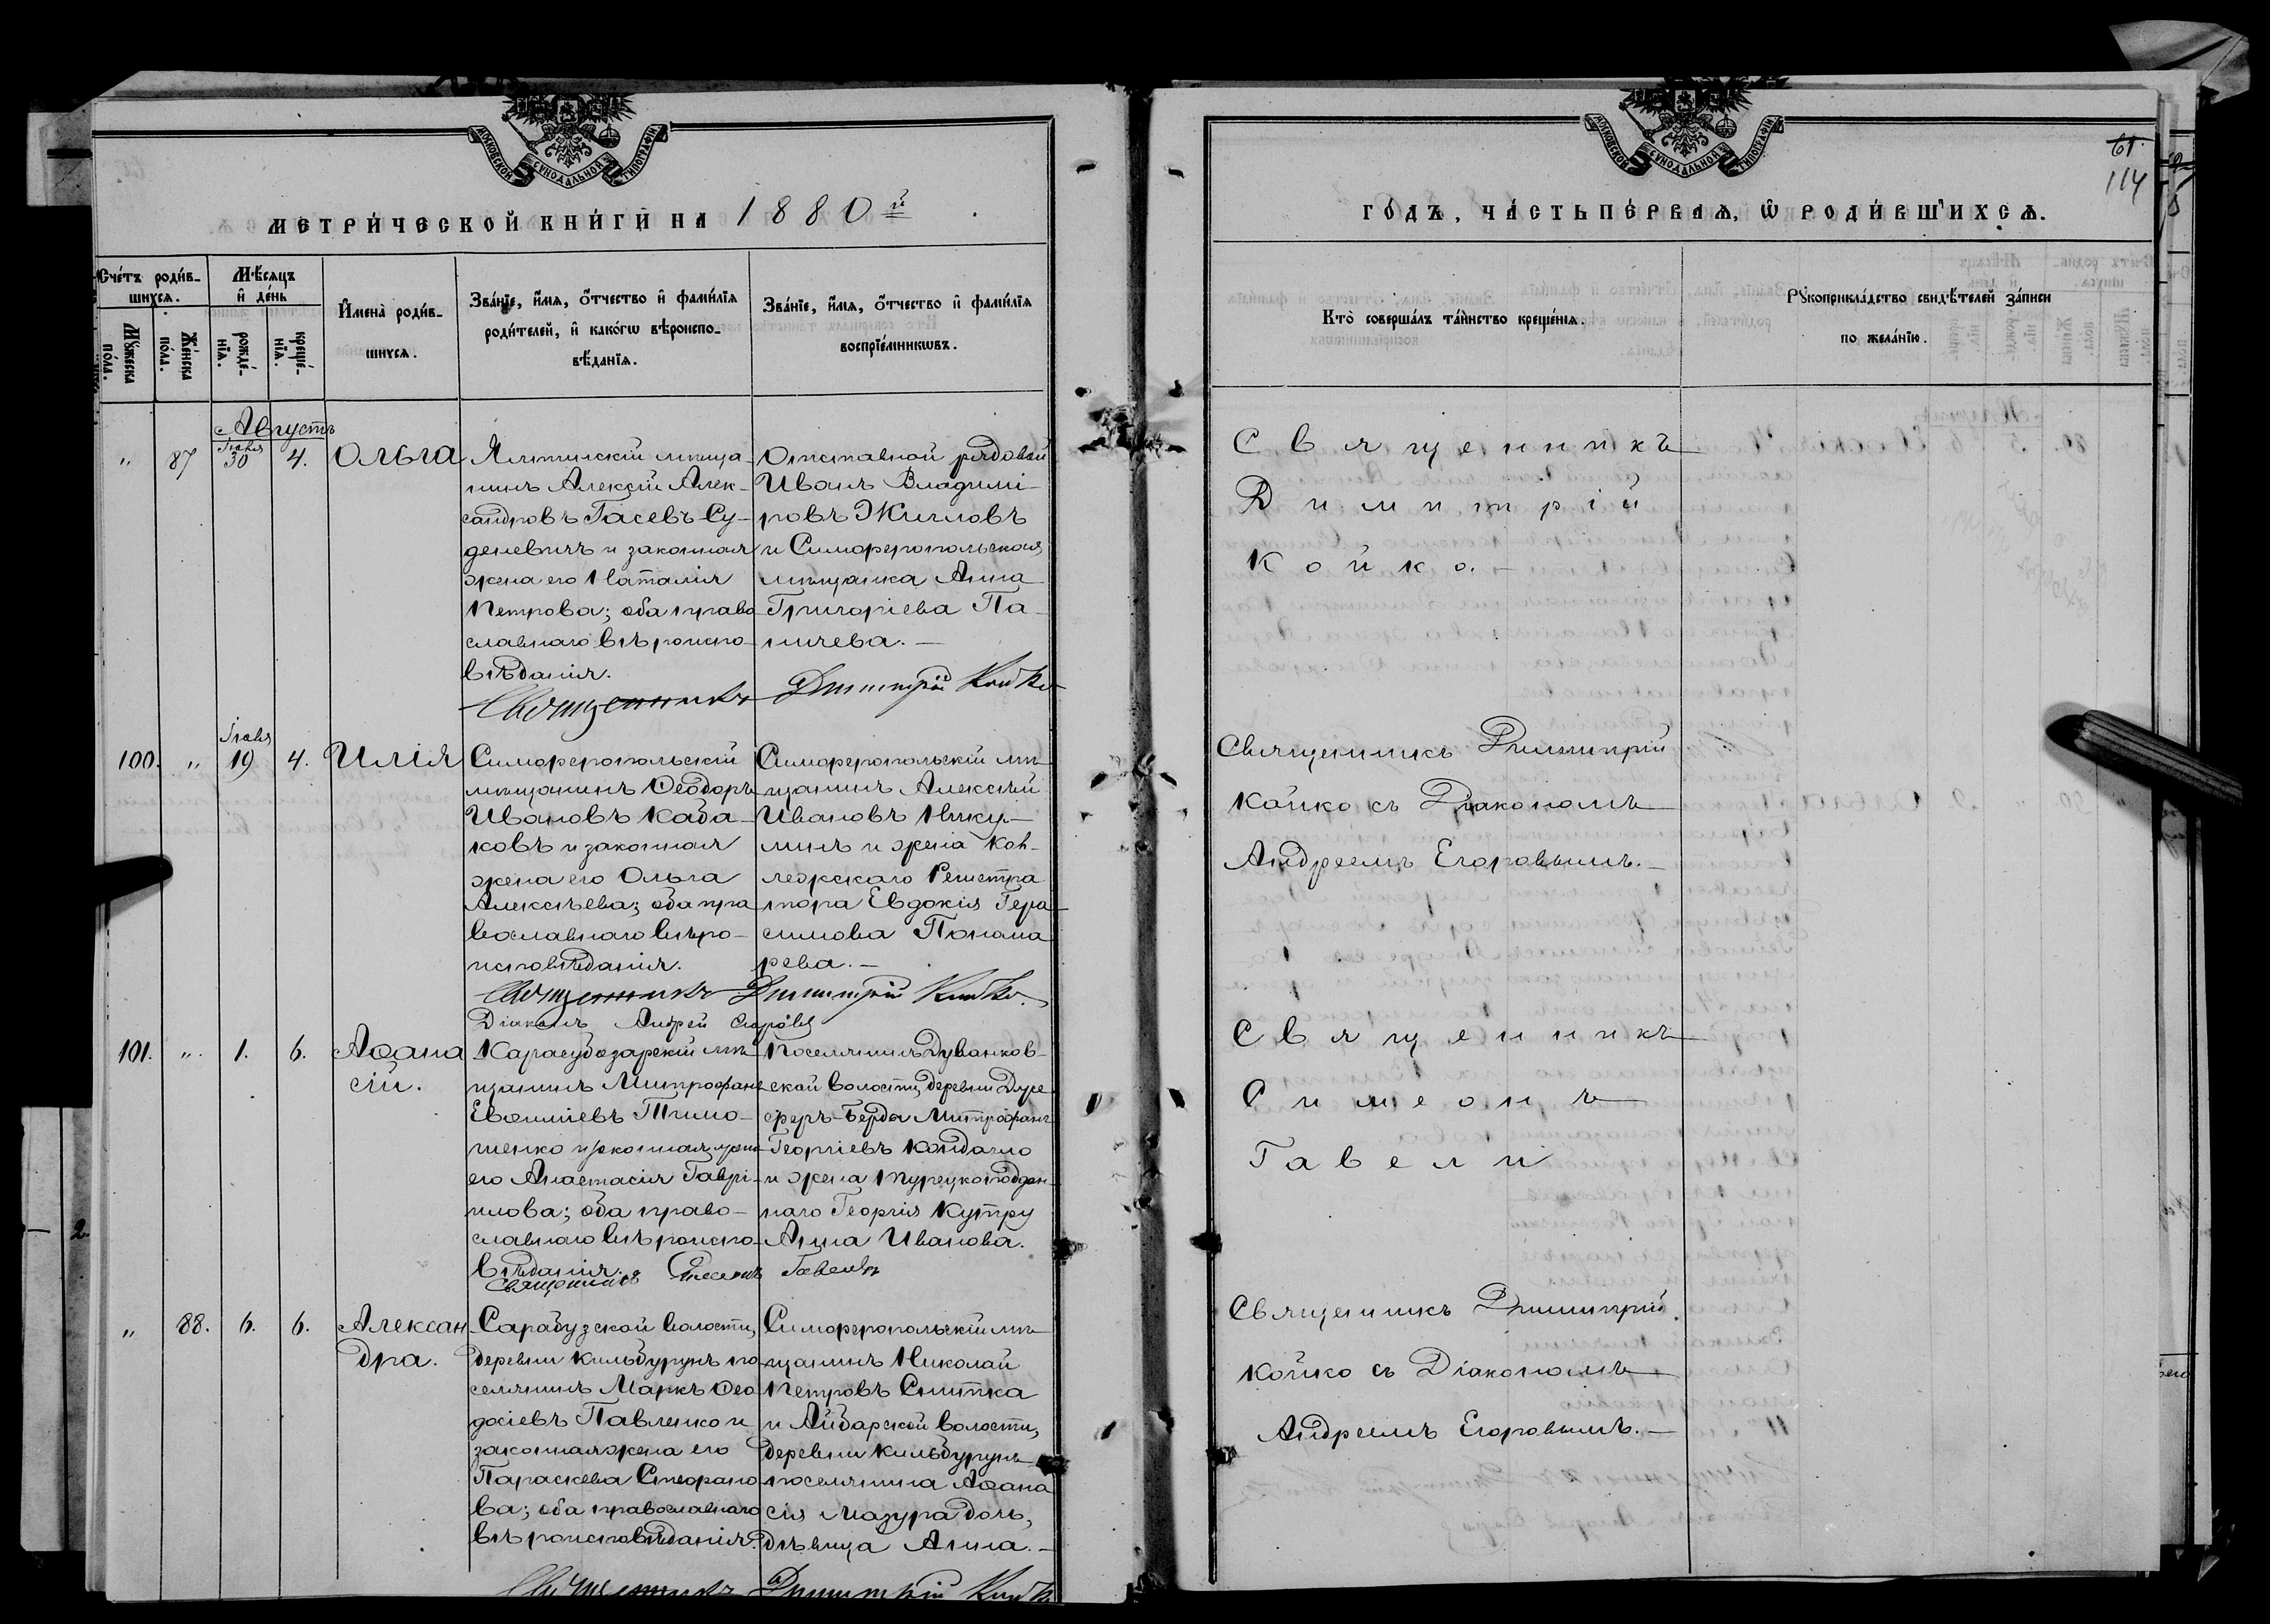 МОСКОВСКОЙ СѴНОДАЛЬНОЙ ТИПОГРАФІИ
МЕТРИ́ЧЕСКОЙ КНИ́ГИ НА 1880й
Сче́тъ роди́в-
шихся.
Мѣ́сяцъ
и де́нь
Мꙋ́жеска
по́ла.
Же́нска
по́ла.
рожде́-
нїя.
креще́-
нїя.
Имена̀ роди́в-
шихся.
Зва́нїе, и́мя, ѻ́тчество и фами́лїя
роди́телей, и како́гѡ вѣроиспо-
вѣ́данїя.
Зва́нїе, и́мя, ѻ́тчество и фами́лїя
воспрїе́мникѡвъ.
Августъ
Іюля
" 87 30 4. Ольга
Ялтинскій мѣща-
нинъ Алексій Алек-
сандровъ Гасевъ-Су-
деневичъ и законная
жена его Наталія
Петрова; оба право
славнаго вѣроиспо-
вѣданія.
Отставной рядовый
Иванъ Владимі-
ровъ Жигловъ
и Симферопольская
мѣщанка Анна
Григоріева Па-
ничева.—
Священникъ Димитрій Койко
Іюля
100. " 19 4. Илія
Симферопольскій
мѣщанинъ Ѳеодоръ
Ивановъ Када-
ковъ и законная
жена его Ольга
Алексѣева; оба пра
вославнаго вѣро-
исповѣданія.
Симферопольскій мѣ-
щанинъ Алексѣй
Ивановъ Нику-
линъ и жена Кол-
лежскаго Регистра
тора Евдокія Гера-
симова Понома
рева.—
Священникъ Димитрій Койко.
Діаконъ Андрей Егоровъ
101. " 1. 6. Аѳана
сій.
Карасубазарскій мѣ-
щанинъ Митрофанъ
Евѳиміевъ Тимо-
шенко и законная жена
его Анастасія Гаврі-
илова; оба право-
славнаго вѣроиспо-
вѣданія.
Поселянинъ Дуванков-
ской волости, деревни
Митрофанъ
Георгіевъ Кондагло
и жена Турецкоподдан-
наго Георгія Кутру
Анна Иванова.
Священникъ Симеонъ Гавели
" 88. 6. 6. Алексан
дра.
Сарабузской волости,
деревни Кильбурунъ по-
селянинъ Маркъ Ѳео
досіевъ Павленко и
законная жена его
Параскева Стефано
ва; оба православнаго
вѣроисповѣданія.
Симферопольскій мѣ-
щанинъ Николай
Петровъ Снитка
и Айбарской волости,
деревни Кильбурунъ
поселянина Аѳана
сія Мазура дочь,
дѣвица Анна.—
Священникъ Димитрій Койко
МОСКОВСКОЙ СѴНОДАЛЬНОЙ ТИПОГРАФІИ
61.
114
ГО́ДЪ, ЧА́СТЬ ПЕ́РВАЯ, Ѡ РОДИ́ВШИХСЯ.
Кто̀ соверша́лъ та́инство креще́нїя.
Рꙋкоприкла́дство свидѣ́телей за́писи
по жела́нїю.
Священникъ
Димитрій
Койко.—
Священникъ Димитрій
Койко съ Діакономъ
Андреемъ Егоровымъ.—
Священникъ
Симеонъ
Гавели
Священникъ Димитрій
Койко съ Діакономъ
Андреемъ Егоровымъ.—